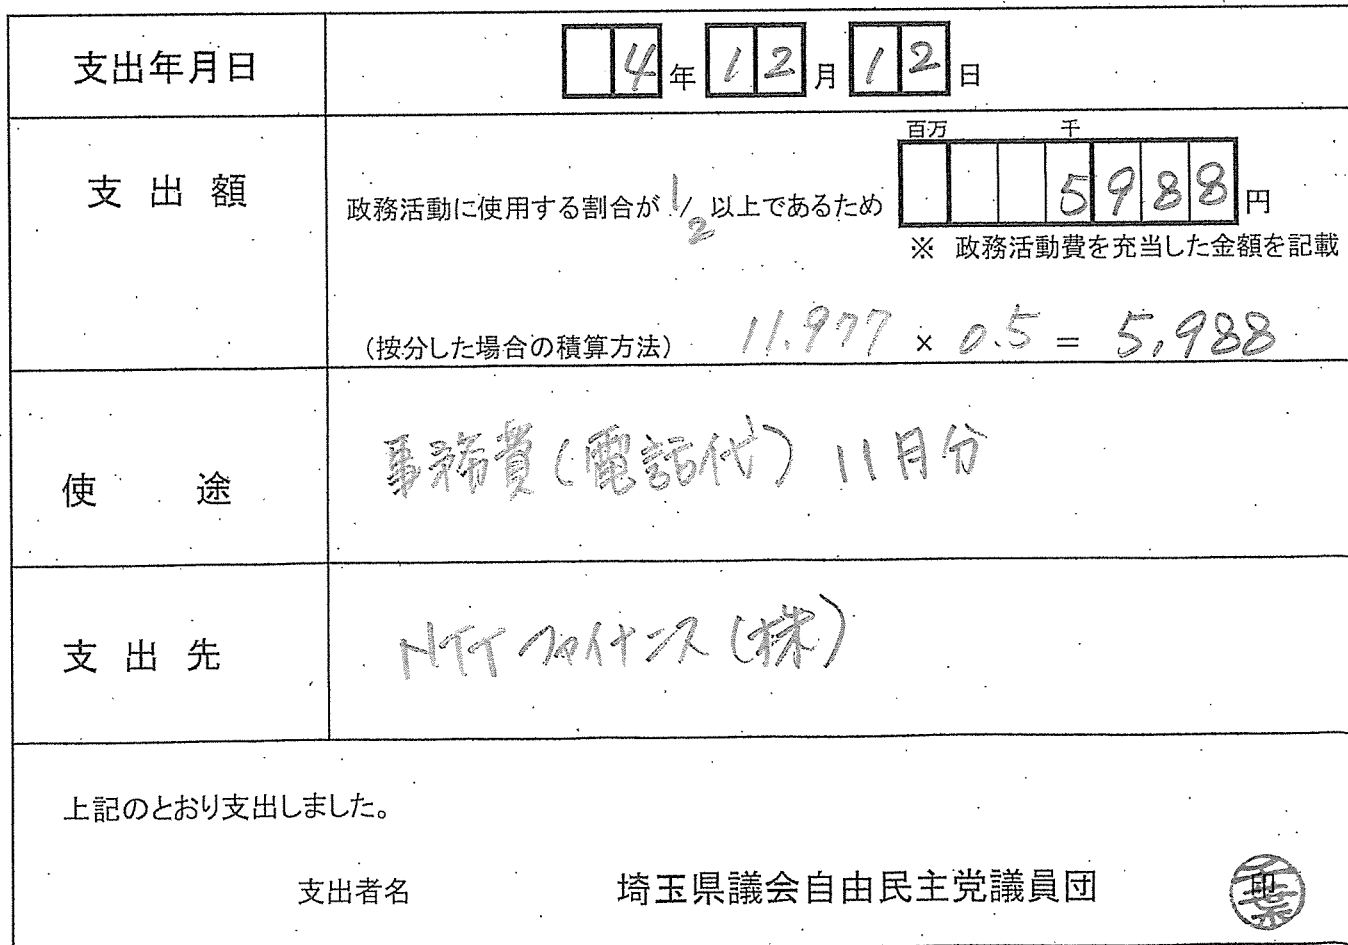 支出年月日
4年12月12日
支出額
百万 千
政務活動に使用する割合が 1/2 以上であるため 5988円
※ 政務活動費を充当した金額を記載
(按分した場合の積算方法) 11.977 × 0.5 = 5,988
使途
事務費(電話代) 11月分
支出先
NTTファイナンス(株)
上記のとおり支出しました。
支出者名 埼玉県議会自由民主党議員団 印